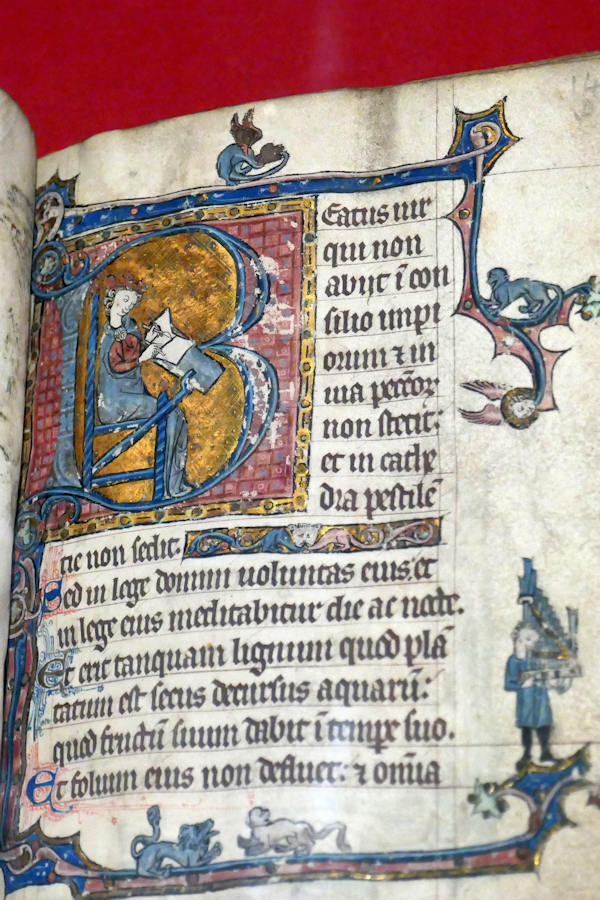 Beatus uir
qui non
abijt ī con
silio impi
orum ⁊ in
uia pecc̄oꝝ
non stetit:
et in cathe
dra pestilē
tie non sedit.
Sed in lege domini uoluntas eius. et
in lege eius meditabitur die ac nocte.
Et erit tanquam lignum quod plā
tatum est secus decursus aquarū:
quod fructū suum dabit ī tempe suo.
Et folium eius non defluet: ⁊ om̄ia